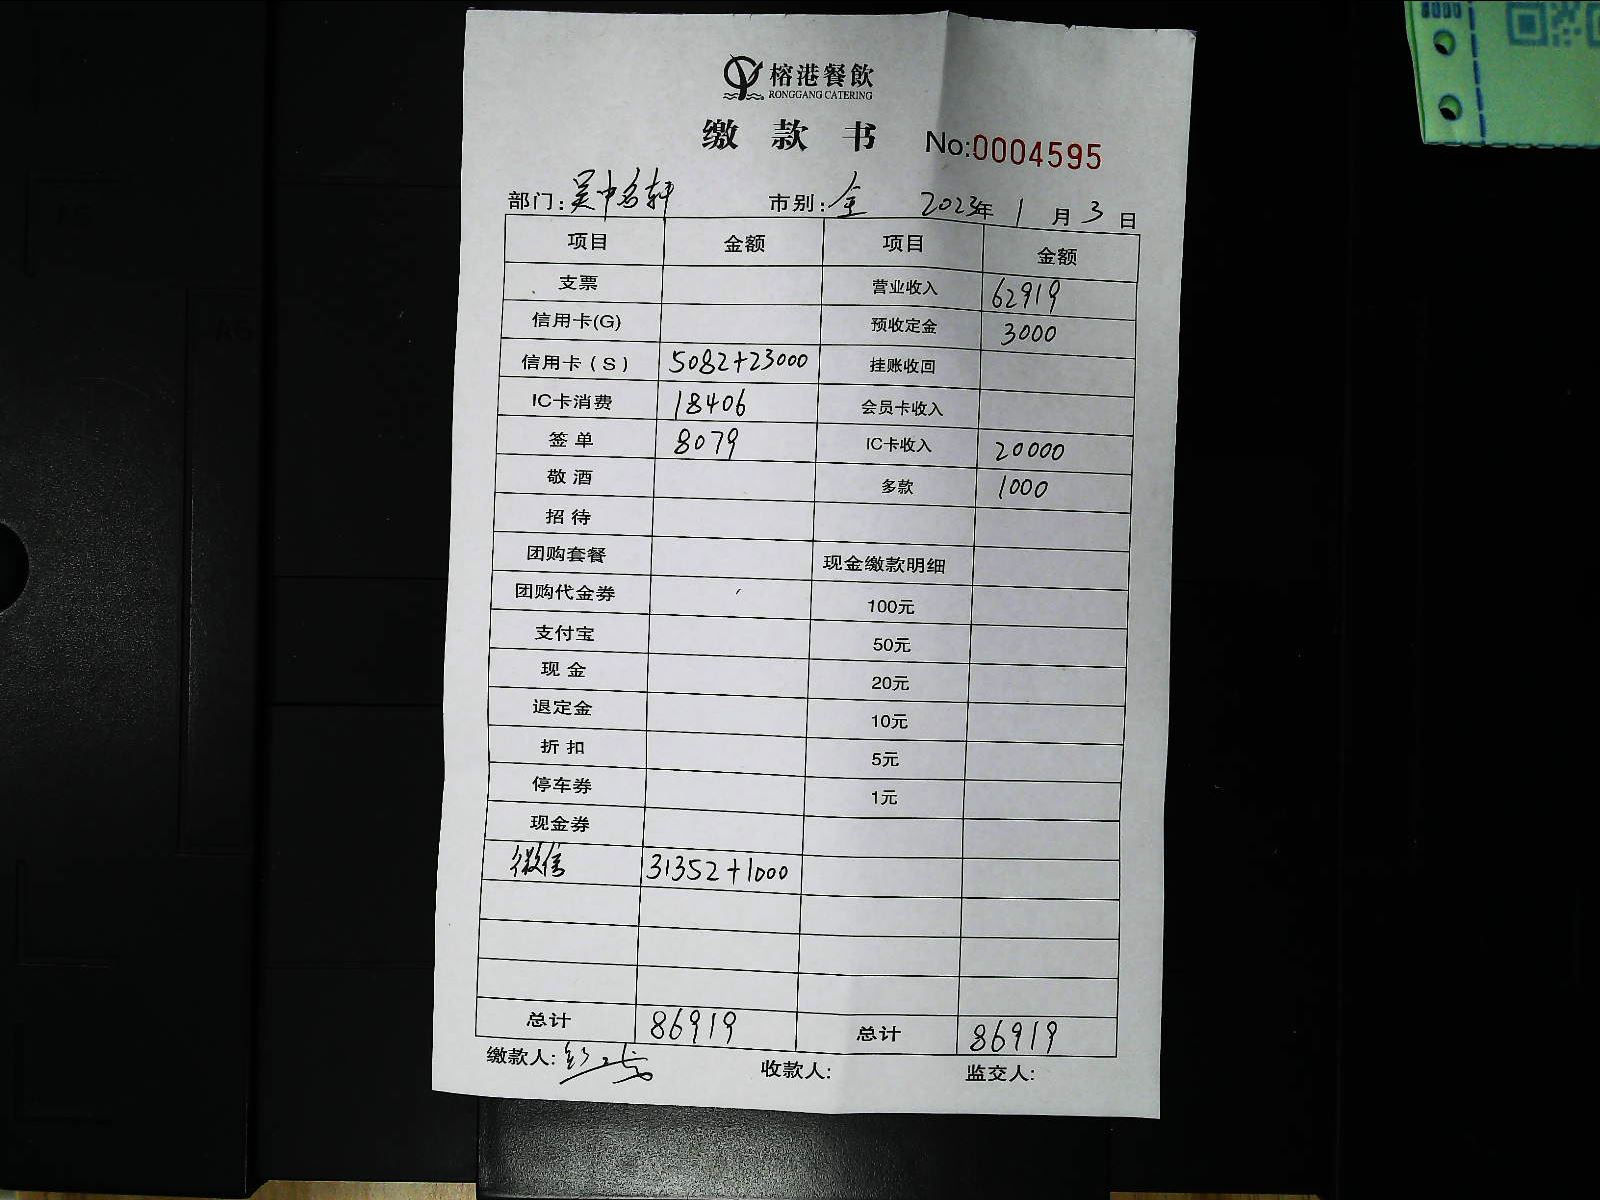 榕港餐飲
RONGGANG CATERING
缴 款 书 No:0004595
部门: 吴中名轩 市别: 全 2023年 1 月 3 日
项目 金额 项目 金额
支票 营业收入 62919
信用卡(G) 预收定金 3000
信用卡(S) 5082+23000 挂账收回
IC卡消费 18406 会员卡收入
签单 8079 IC卡收入 20000
敬酒 多款 1000
招待
团购套餐 现金缴款明细
团购代金券 100元
支付宝 50元
现金 20元
退定金 10元
折扣 5元
停车券 1元
现金券
微信 31352+1000
总计 86919 总计 86919
缴款人: 收款人: 监交人: